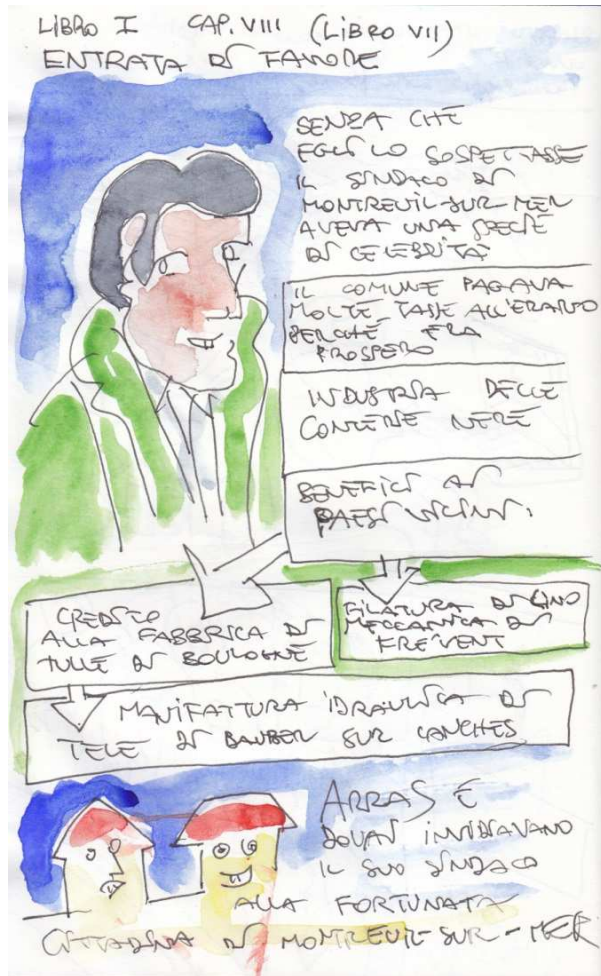 LIBRO I CAP. VIII (LIBRO VII)
ENTRATA DI FAVORE
SENZA CHE
EGLI LO SOSPETTASSE
IL SINDACO DI
MONTREUIL-SUR-MER
AVEVA UNA SPECIE
DI CELEBRITÀ
IL COMUNE PAGAVA
MOLTE TASSE ALL'ERARIO
PERCHÉ ERA
PROSPERO
INDUSTRIA DELLE
CONTERIE NERE
BENEFICI AI
PAESI VICINI.
CREDITO
ALLA FABBRICA DI
TULLE DI BOULOGNE
FILATURA DI LINO
MECCANICA DI
FREVENT
MANIFATTURA IDRAULICA DI
TELE DI BOUBER SUR CANCHES
ARRAS E
DOUAI INVIDIAVANO
IL SUO SINDACO
ALLA FORTUNATA
CITTADINA DI MONTREUIL-SUR-MER